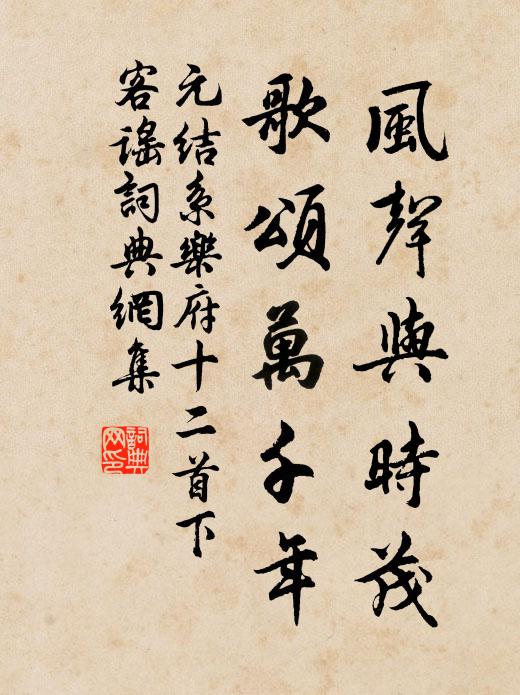 風聲與時茂
歌頌萬千年
元結系樂府十二首下
客謠詞典網集
詞典网印